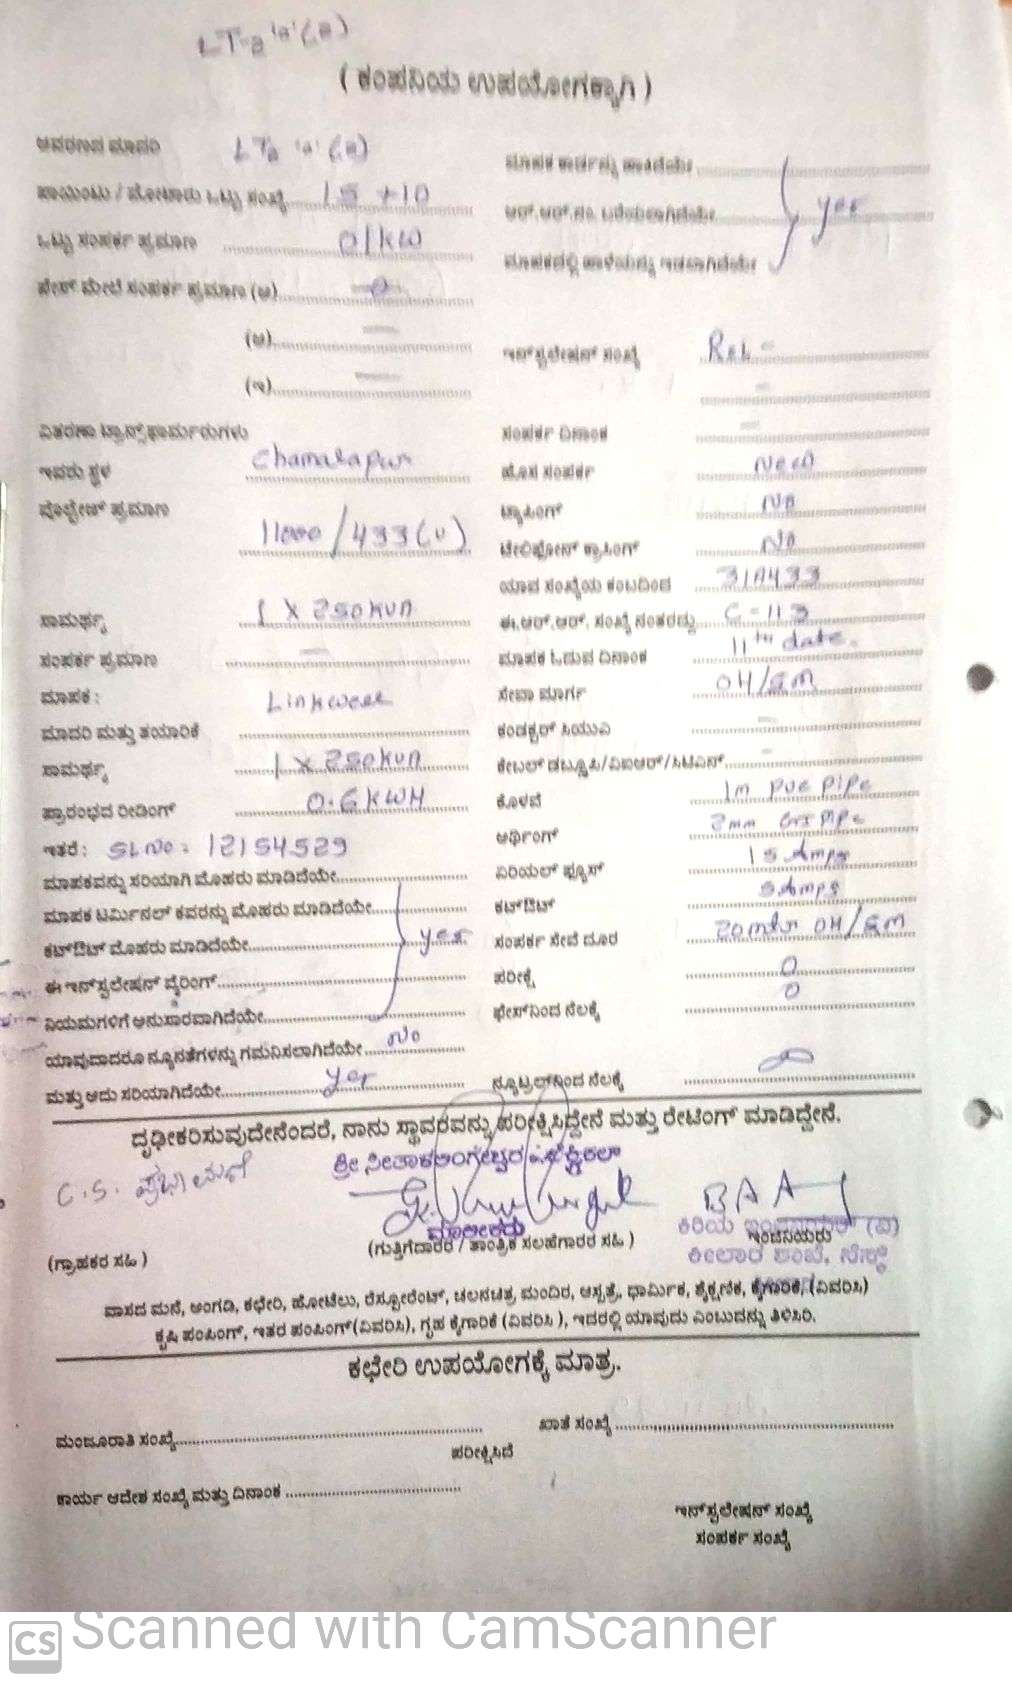 LT-2 'a' (a)
( ಕಂಪನಿಯ ಉಪಯೋಗಕ್ಕಾಗಿ )
ಆವರಣದ ಮಾದರಿ LT2 'a' (a)
ಪಾಯಿಂಟು / ಮೋಟಾರು ಒಟ್ಟು ಸಂಖ್ಯೆ 15 + 10
ಒಟ್ಟು ಸಂಪರ್ಕ ಪ್ರಮಾಣ 01KW
(ಆ)
(ಇ)
ಇನ್‌ಸ್ಟಲೇಷನ್ ಸಂಖ್ಯೆ
ವಿತರಣಾ ಟ್ರಾನ್ಸ್‌ಫಾರ್ಮರುಗಳು
ಸಂಪರ್ಕ ದಿನಾಂಕ
ಇವರು ಸ್ಥಳ Chamalapur
ಹೊಸ ಸಂಪರ್ಕ New
ವೊಲ್ಟೇಜ್ ಪ್ರಮಾಣ 11000/433(v)
ಟ್ಯಾಪಿಂಗ್ No
ಟೆಲಿಫೋನ್ ಕ್ರಾಸಿಂಗ್ No
ಯಾವ ಸಂಖ್ಯೆಯ ಕಂಬದಿಂದ 31A433
ಸಾಮರ್ಥ್ಯ 1 X 250KVA
ಈ.ಆರ್.ಆರ್. ಸಂಖ್ಯೆ ನಂತರದ್ದು C-113
ಸಂಪರ್ಕ ಪ್ರಮಾಣ
ಮಾಪಕ ಓದುವ ದಿನಾಂಕ 11th date.
ಮಾಪಕ : Linkwell
ಸೇವಾ ಮಾರ್ಗ OH/GM
ಮಾದರಿ ಮತ್ತು ತಯಾರಿಕೆ
ಕಂಡಕ್ಟರ್ ಪಿಯುವಿ
ಸಾಮರ್ಥ್ಯ 1 X 250KVA
ಕೇಬಲ್ ಡಬ್ಲ್ಯೂಪಿ/ವಿಐಆರ್/ಸಿಟಿಎಸ್
ಪ್ರಾರಂಭದ ರೀಡಿಂಗ್ 0.6KWH
ಕೊಳವೆ 1m PVC Pipe
ಇತರೆ : SL No: 12154529
ಅರ್ಥಿಂಗ್ 2mm GI PIPe
ಮಾಪಕವನ್ನು ಸರಿಯಾಗಿ ಮೊಹರು ಮಾಡಿದೆಯೇ
ಏರಿಯಲ್ ಫ್ಯೂಸ್ 15 Amps
ಮಾಪಕ ಟರ್ಮಿನಲ್ ಕವರನ್ನು ಮೊಹರು ಮಾಡಿದೆಯೇ
ಕಟ್‌ಔಟ್ 5 Amps
ಕಟ್‌ಔಟ್ ಮೊಹರು ಮಾಡಿದೆಯೇ yes
ಸಂಪರ್ಕ ಸೇವೆ ದೂರ 20mtr OH/GM
ಈ ಇನ್‌ಸ್ಟಲೇಷನ್ ವೈರಿಂಗ್
ಪರೀಕ್ಷೆ 0
ನಿಯಮಗಳಿಗೆ ಅನುಸಾರವಾಗಿದೆಯೇ
ಫೇಸ್‌ನಿಂದ ನೆಲಕ್ಕೆ 0
ಯಾವುದಾದರೂ ನ್ಯೂನತೆಗಳನ್ನು ಗಮನಿಸಲಾಗಿದೆಯೇ No
ಮತ್ತು ಅದು ಸರಿಯಾಗಿದೆಯೇ yes
ನ್ಯೂಟ್ರಲ್‌ನಿಂದ ನೆಲಕ್ಕೆ
ದೃಢೀಕರಿಸುವುದೇನೆಂದರೆ, ನಾನು ಸ್ಥಾವರವನ್ನು ಪರೀಕ್ಷಿಸಿದ್ದೇನೆ ಮತ್ತು ರೇಟಿಂಗ್ ಮಾಡಿದ್ದೇನೆ.
ಮಾಲೀಕರು
(ಗ್ರಾಹಕರ ಸಹಿ )
(ಗುತ್ತಿಗೆದಾರರ / ತಾಂತ್ರಿಕ ಸಲಹೆಗಾರರ ಸಹಿ )
ಇಂಜಿನಿಯರು
ವಾಸದ ಮನೆ, ಅಂಗಡಿ, ಕಛೇರಿ, ಹೋಟೆಲು, ರೆಸ್ಟೋರೆಂಟ್, ಚಲನಚಿತ್ರ ಮಂದಿರ, ಆಸ್ಪತ್ರೆ, ಧಾರ್ಮಿಕ, ಶೈಕ್ಷಣಿಕ, ಕೈಗಾರಿಕೆ, (ವಿವರಿಸಿ)
ಕೃಷಿ ಪಂಪಿಂಗ್, ಇತರ ಪಂಪಿಂಗ್ (ವಿವರಿಸಿ), ಗೃಹ ಕೈಗಾರಿಕೆ (ವಿವರಿಸಿ ), ಇದರಲ್ಲಿ ಯಾವುದು ಎಂಬುದನ್ನು ತಿಳಿಸಿರಿ.
ಕಛೇರಿ ಉಪಯೋಗಕ್ಕೆ ಮಾತ್ರ.
ಮಂಜೂರಾತಿ ಸಂಖ್ಯೆ
ಖಾತೆ ಸಂಖ್ಯೆ
ಪರೀಕ್ಷಿಸಿದೆ
ಕಾರ್ಯ ಆದೇಶ ಸಂಖ್ಯೆ ಮತ್ತು ದಿನಾಂಕ
ಇನ್‌ಸ್ಟಲೇಷನ್ ಸಂಖ್ಯೆ
ಸಂಪರ್ಕ ಸಂಖ್ಯೆ
CS Scanned with CamScanner